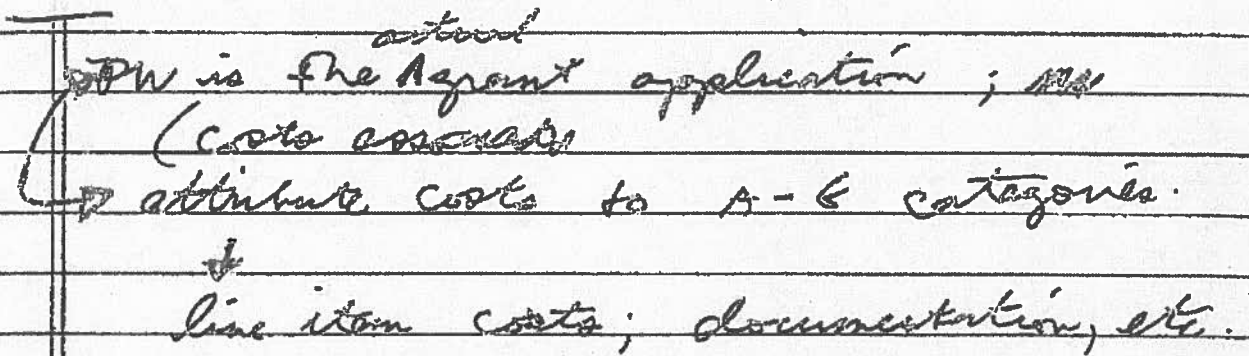 actual
PW is the grant application;
(costs associated
attribute costs to A-G categories.
line item costs; documentation, etc.